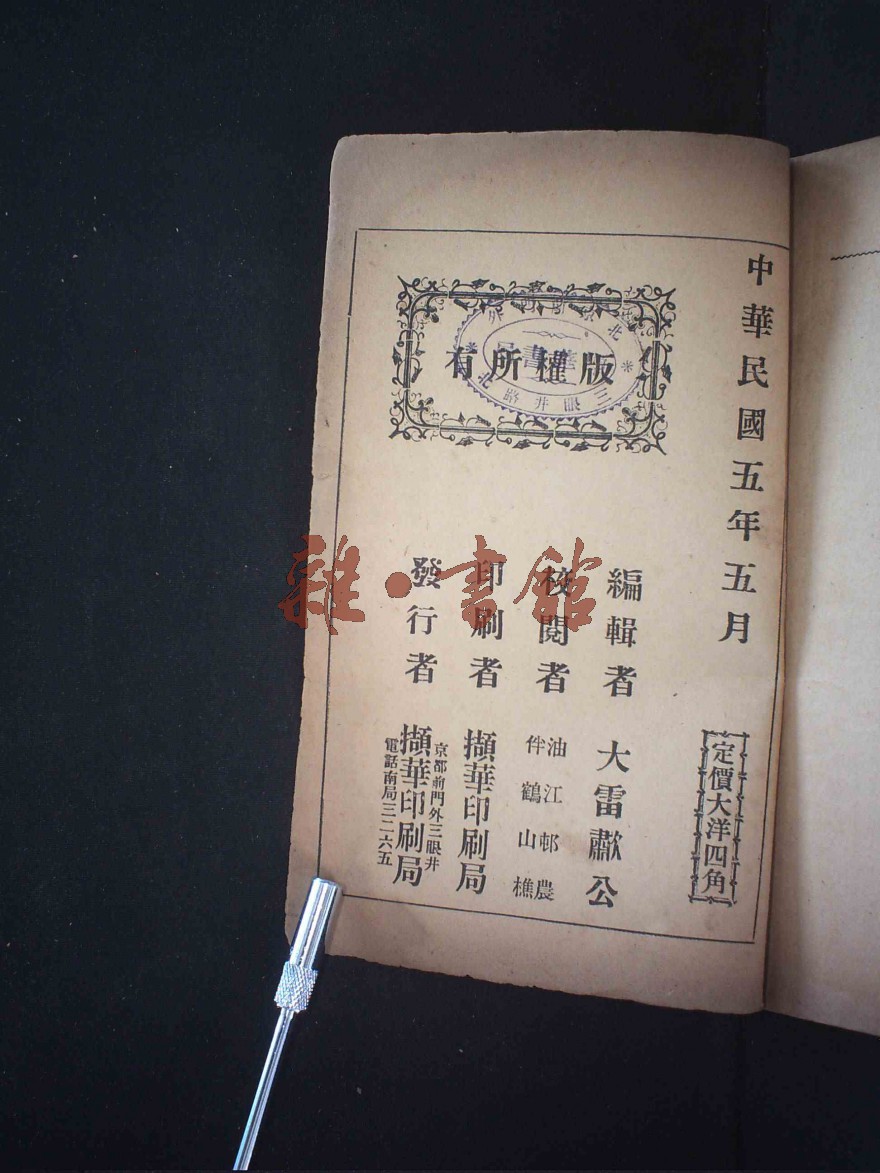 中華民國五年五月
定價大洋四角
版權所有
三眼井路北
編輯者 大雷歗公
校閱者 油江邨農
伴鶴山樵
印刷者 擷華印刷局
發行者 擷華印刷局
京都前門外三眼井
電話南局三二六五
雜·書館